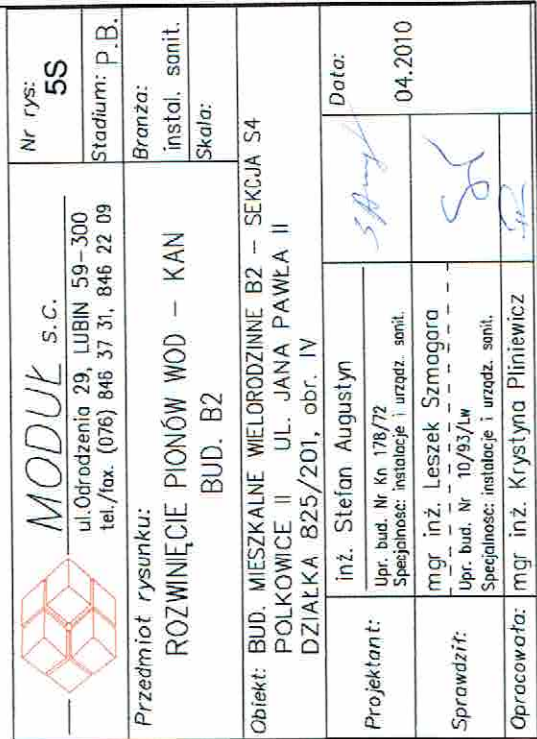 MODUŁ s.c.
ul.Odrodzenia 29, LUBIN 59-300
tel./fax. (076) 846 37 31, 846 22 09
Nr rys:
5S
Stadium: P.B.
Przedmiot rysunku:
ROZWINIĘCIE PIONÓW WOD - KAN
BUD. B2
Branża:
instal. sanit.
Skala:
Obiekt: BUD. MIESZKALNE WIELORODZINNE B2 - SEKCJA S4
POLKOWICE II UL. JANA PAWŁA II
DZIAŁKA 825/201, obr. IV
Projektant:
inż. Stefan Augustyn
Upr. bud. Nr Kn 178/72
Specjalnosc: instalacje i urządz. sanit.
Data:
04.2010
Sprawdził:
mgr inż. Leszek Szmagara
Upr. bud. Nr 10/93/Lw
Specjalnosc: instalacje i urządz. sanit.
Opracowała: mgr inż. Krystyna Pliniewicz